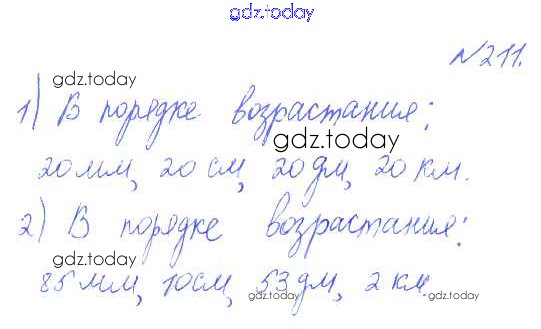 gdz.today
№211.
gdz.today
1) В порядке возрастания:
gdz.today
20 мм, 20 см, 20 дм, 20 км.
gdz.today
2) В порядке возрастания:
gdz.today
85 мм, 10 см, 53 дм, 2 км
gdz.today gdz.today